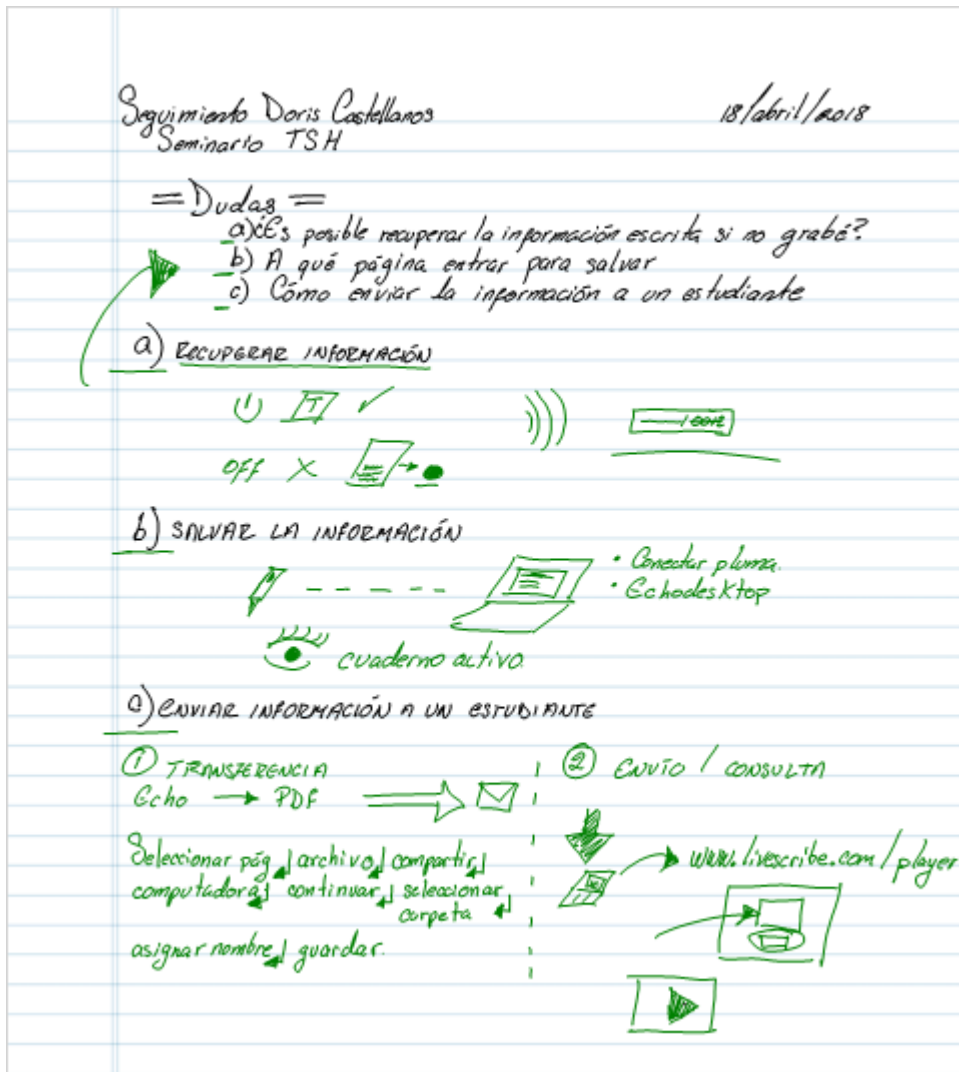 Seguimiento Doris Castellanos 18/abril/2018
Seminario TSH
= Dudas =
a) ¿Es posible recuperar la información escrita si no grabé?
b) A qué página entrar para salvar
c) Cómo enviar la información a un estudiante
a) RECUPERAR INFORMACIÓN
T
OFF X
b) SALVAR LA INFORMACIÓN
• Conectar pluma.
• Echodesktop
cuaderno activo.
c) ENVIAR INFORMACIÓN A UN ESTUDIANTE
① TRANSFERENCIA
Echo → PDF
Seleccionar pág archivo compartir
computadora continuar seleccionar
carpeta
asignar nombre guardar.
② ENVÍO / CONSULTA
www.livescribe.com/player